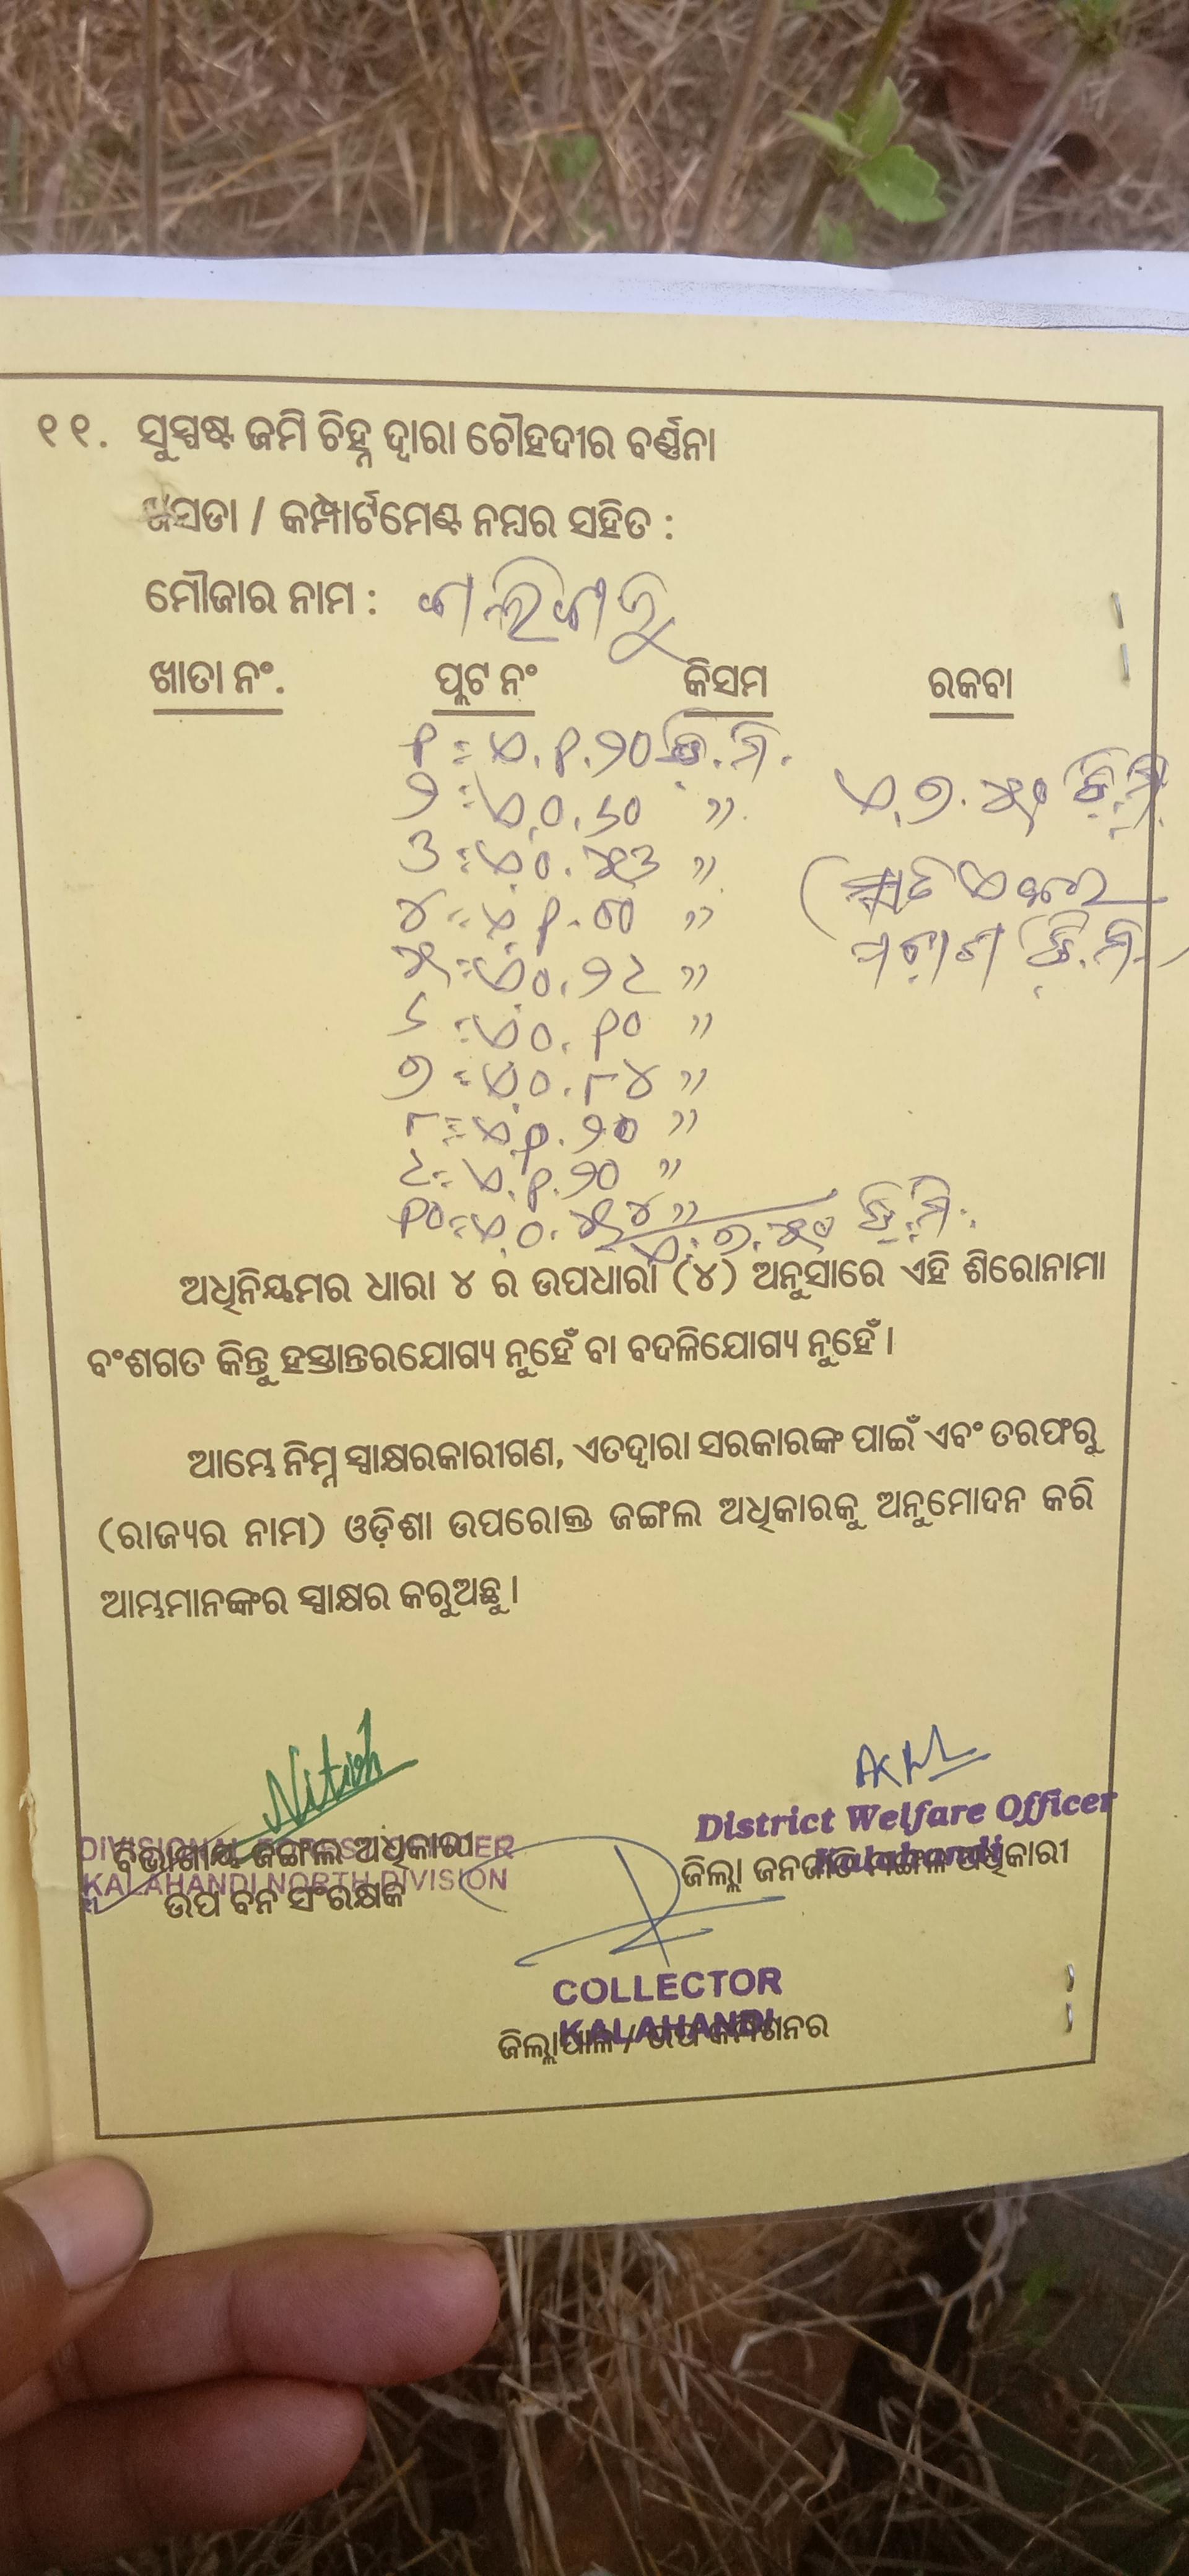 ୧୧. ସୁସ୍ପଷ୍ଟ ଜମି ଚିହ୍ନ ଦ୍ୱାରା ଚୌହଦୀର ବର୍ଣ୍ଣନା
ଖସଡା / କମ୍ପାର୍ଟମେଣ୍ଟ ନମ୍ବର ସହିତ :
ମୌଜାର ନାମ :
ଖାତା ନଂ. ପ୍ଲଟ ନଂ କିସମ ରକବା
୧ = ଏ.୧.୨୦ ଡି.ମି.
୨ = ଏ.୦.୬୦ "
୩ = ଏ.୦.୫୩ "
ଏ.୭.୫୦ ଡି.ମି.
୪ = ଏ.୧.୦୦ "
୫ = ଏ.୦.୨୯ "
(ସାତ ଏକର
ପଚାଶ ଡି.ମି.)
୬ = ଏ.୦.୧୦ "
୭ = ଏ.୦.୮୪ "
୮ = ଏ.୧.୨୦ "
୯ = ଏ.୧.୨୦ "
୧୦ = ଏ.୦.୫୪ "
ଏ.୭.୫୦ ଡି.ମି.
ଅଧିନିୟମର ଧାରା ୪ ର ଉପଧାରା (୪) ଅନୁସାରେ ଏହି ଶିରୋନାମା
ବଂଶଗତ କିନ୍ତୁ ହସ୍ତାନ୍ତରଯୋଗ୍ୟ ନୁହେଁ ବା ବଦଳିଯୋଗ୍ୟ ନୁହେଁ ।
ଆମ୍ଭେ ନିମ୍ନ ସ୍ୱାକ୍ଷରକାରୀଗଣ, ଏତଦ୍ୱାରା ସରକାରଙ୍କ ପାଇଁ ଏବଂ ତରଫରୁ
(ରାଜ୍ୟର ନାମ) ଓଡ଼ିଶା ଉପରୋକ୍ତ ଜଙ୍ଗଲ ଅଧିକାରକୁ ଅନୁମୋଦନ କରି
ଆମ୍ଭମାନଙ୍କର ସ୍ୱାକ୍ଷର କରୁଅଛୁ ।
Nitish
DIVISIONAL FOREST OFFICER
ବିଭାଗୀୟ ଜଙ୍ଗଲ ଅଧିକାରୀ
KALAHANDI NORTH DIVISION
ଉପ ବନ ସଂରକ୍ଷକ
District Welfare Officer
Kalahandi
ଜିଲ୍ଲା ଜନଜାତି ମଙ୍ଗଳ ଅଧିକାରୀ
COLLECTOR
KALAHANDI
ଜିଲ୍ଲାପାଳ / ଉପ କମିଶନର